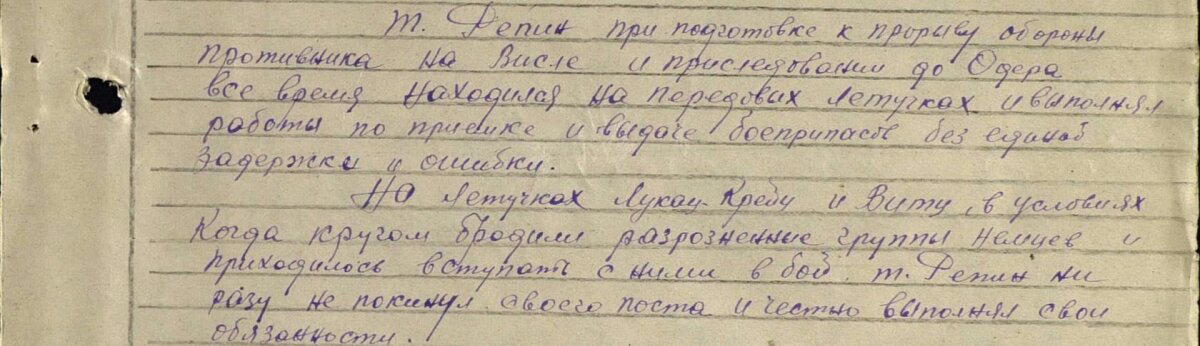 т. Репин при подготовке к прорыву обороны
противника на Висле и приследовании до Одера
все время находился на передовых летучках и выполнял
работы по приемке и выдаче боеприпасов без единой
задержки и ошибки.
На летучках Лукау-Кребу и Виту, в условиях
Когда кругом бродили разрозненные группы немцев и
приходилось вступать с ними в бой т. Репин ни
разу не покинул своего поста и честно выполнял свои
обязанности.